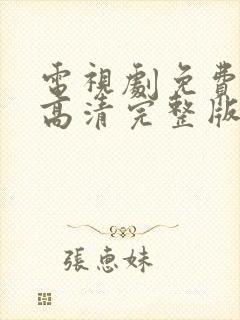 電視劇免費
高清完整版
張惠妹